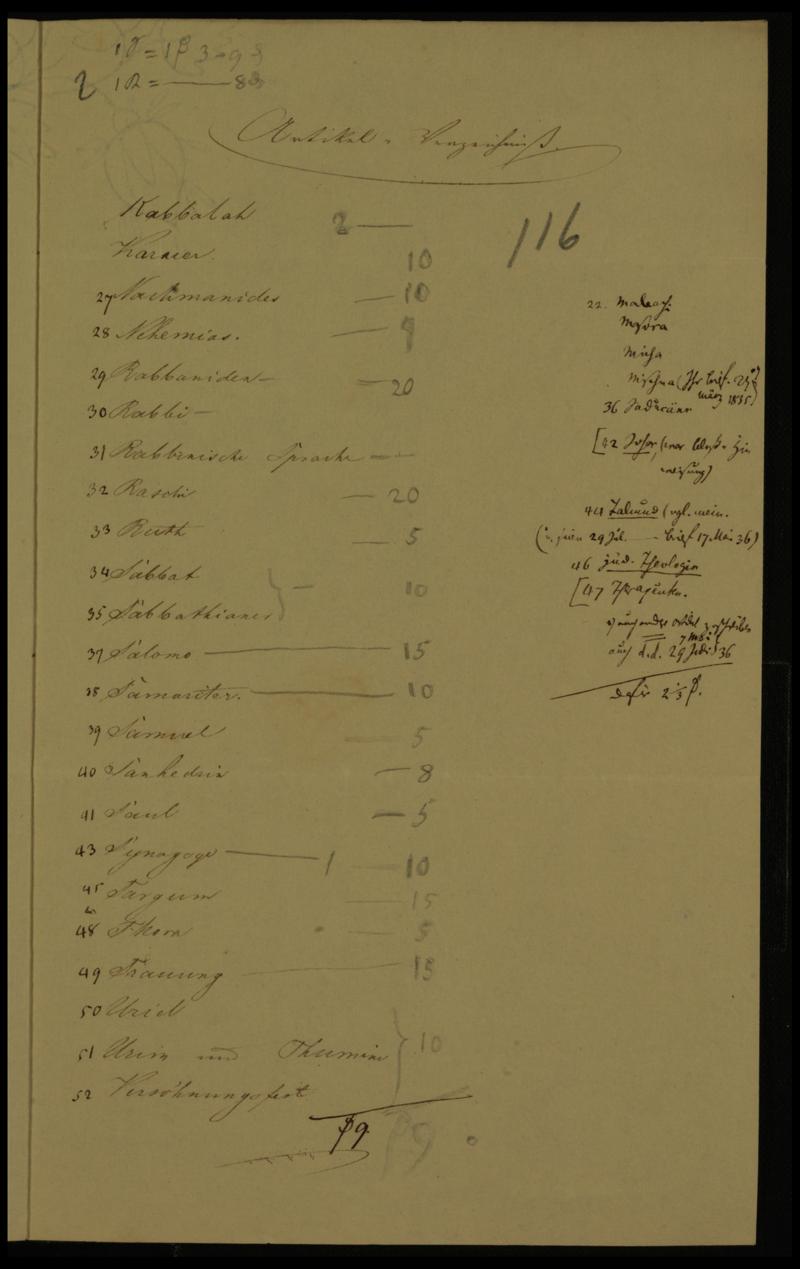 Artikel-Verzeichniß.
Kabbalah 2 —
Karaeer. 10
116
27 Nachmanides — 10
28 Nehemias. —
29 Rabbaniden — 20
30 Rabbi —
31 Rabbinische Sprache — —
32 Raschi — 20
33 Ruth — 5
34 Sabbat
35 Sabbathianer } — 10
37 Salomo — 15
38 Samariter. — 10
39 Samuel — 5
40 Sanhedrin — 8
41 Saul — 5
43 Synagoge — 1 — 10
45 Targum — 15
48 Thora — 5
49 Trauung — 15
50 Uriel
51 Urim und Thumim } 10
52 Versöhnungsfest
22. Maleachi
Micha
Mischna (Ihr Brief. 29
März 1835)
36 Saducäer
44 Talmud (vgl. mein.
29 Jul. — Brief 17. Mai 36)
46 jüd. Theologie
[47 Therapeuten.
auch d.d. 29 Juli 36
dafür